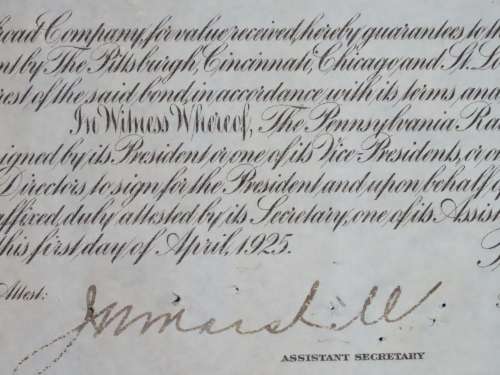 road Company, for value received, hereby guarantees to the
nt by The Pittsburgh, Cincinnati, Chicago, and St. Lo
rest of the said bond, in accordance with its terms, and
In Witness Whereof, The Pennsylvania Ra
igned by its President or one of its Vice-Presidents, or o
Directors, to sign for the President and upon behalf
affixed, duly attested by its Secretary, one of its Assis
this first day of April, 1925.
Attest:
ASSISTANT SECRETARY